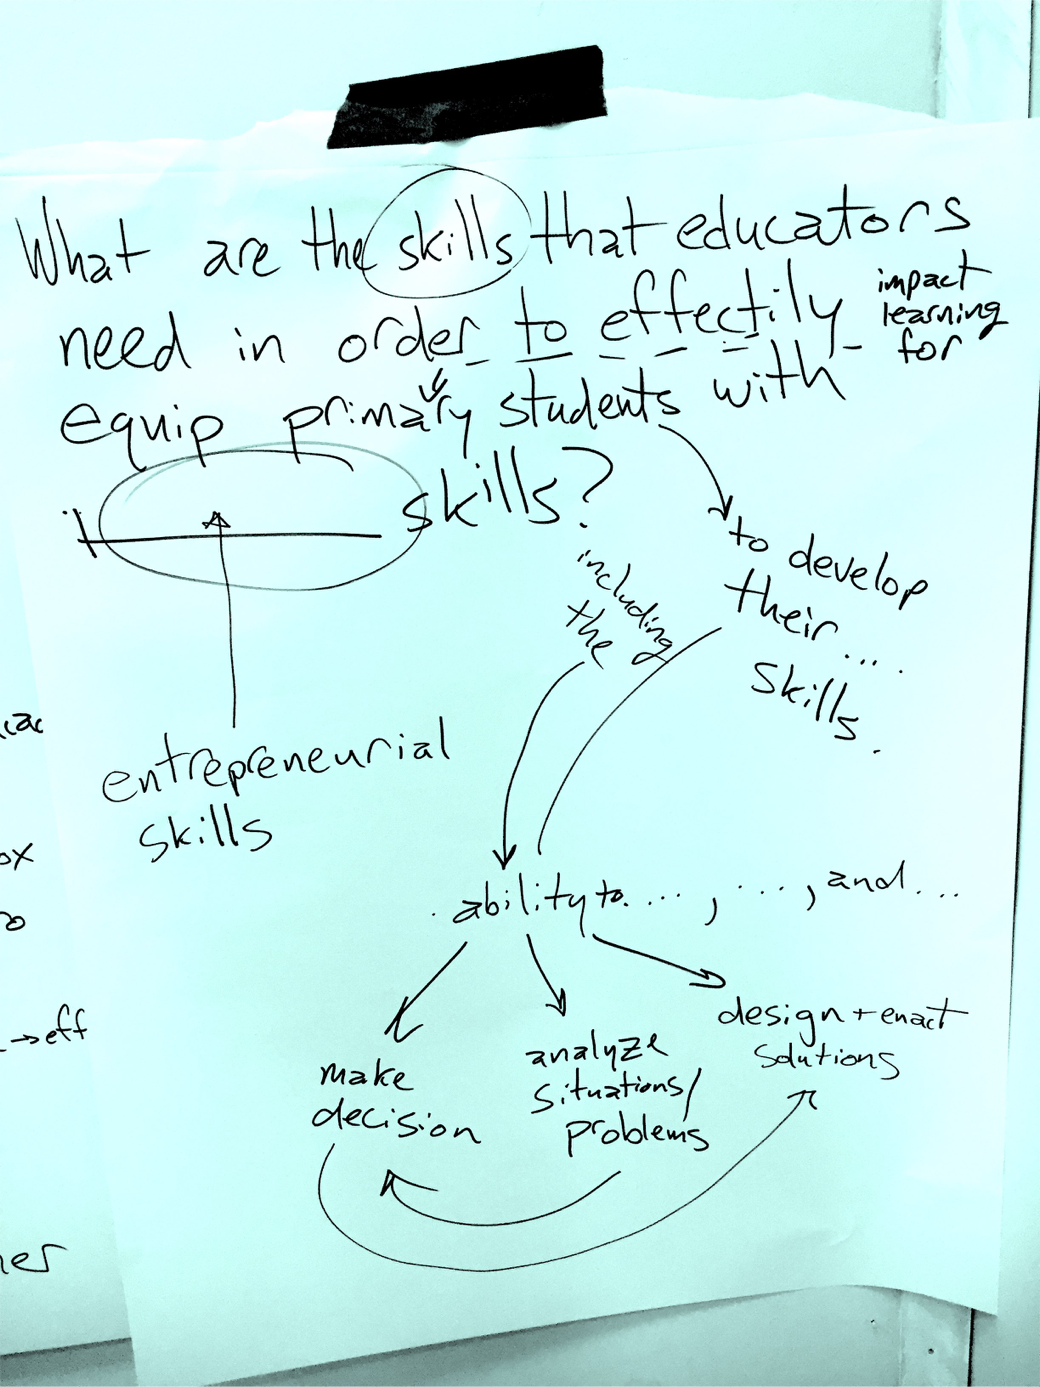 What are the skills that educators
need in order to effectily
impact
learning
for
equip primary students with
skills?
to develop
their ...
skills.
including
the
entrepreneurial
skills
ability to ... , ... , and ...
make
decision
analyze
situations/
problems
design + enact
solutions
ox
→eff
ner